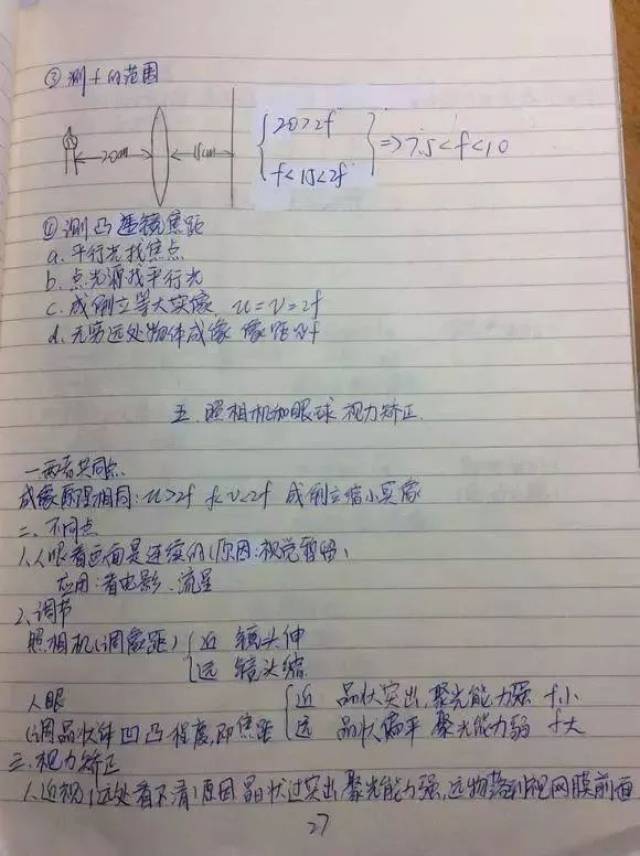 ③测f的范围
20cm 15cm
20>2f
f<15<2f
=>7.5<f<10
④测凸透镜焦距
a.平行光找焦点
b.点光源找平行光
c.成倒立等大实像 u=v=2f
d.无穷远处物体成像 像距为f
五.照相机和眼球 视力矫正.
一.两者共同点.
成像原理相同:u>2f f<v<2f 成倒立缩小实像
二.不同点
1.人眼看画面是连续的(原因:视觉暂留)
应用:看电影、流星
2.调节
照相机(调像距) 近 镜头伸
远 镜头缩
人眼 近 晶状突出,聚光能力强 f小
(调晶状体凹凸程度,即焦距 远 晶状扁平 聚光能力弱 f大
三.视力矫正
1.近视(远处看不清)原因晶状过突出聚光能力强,远物落到视网膜前面
27